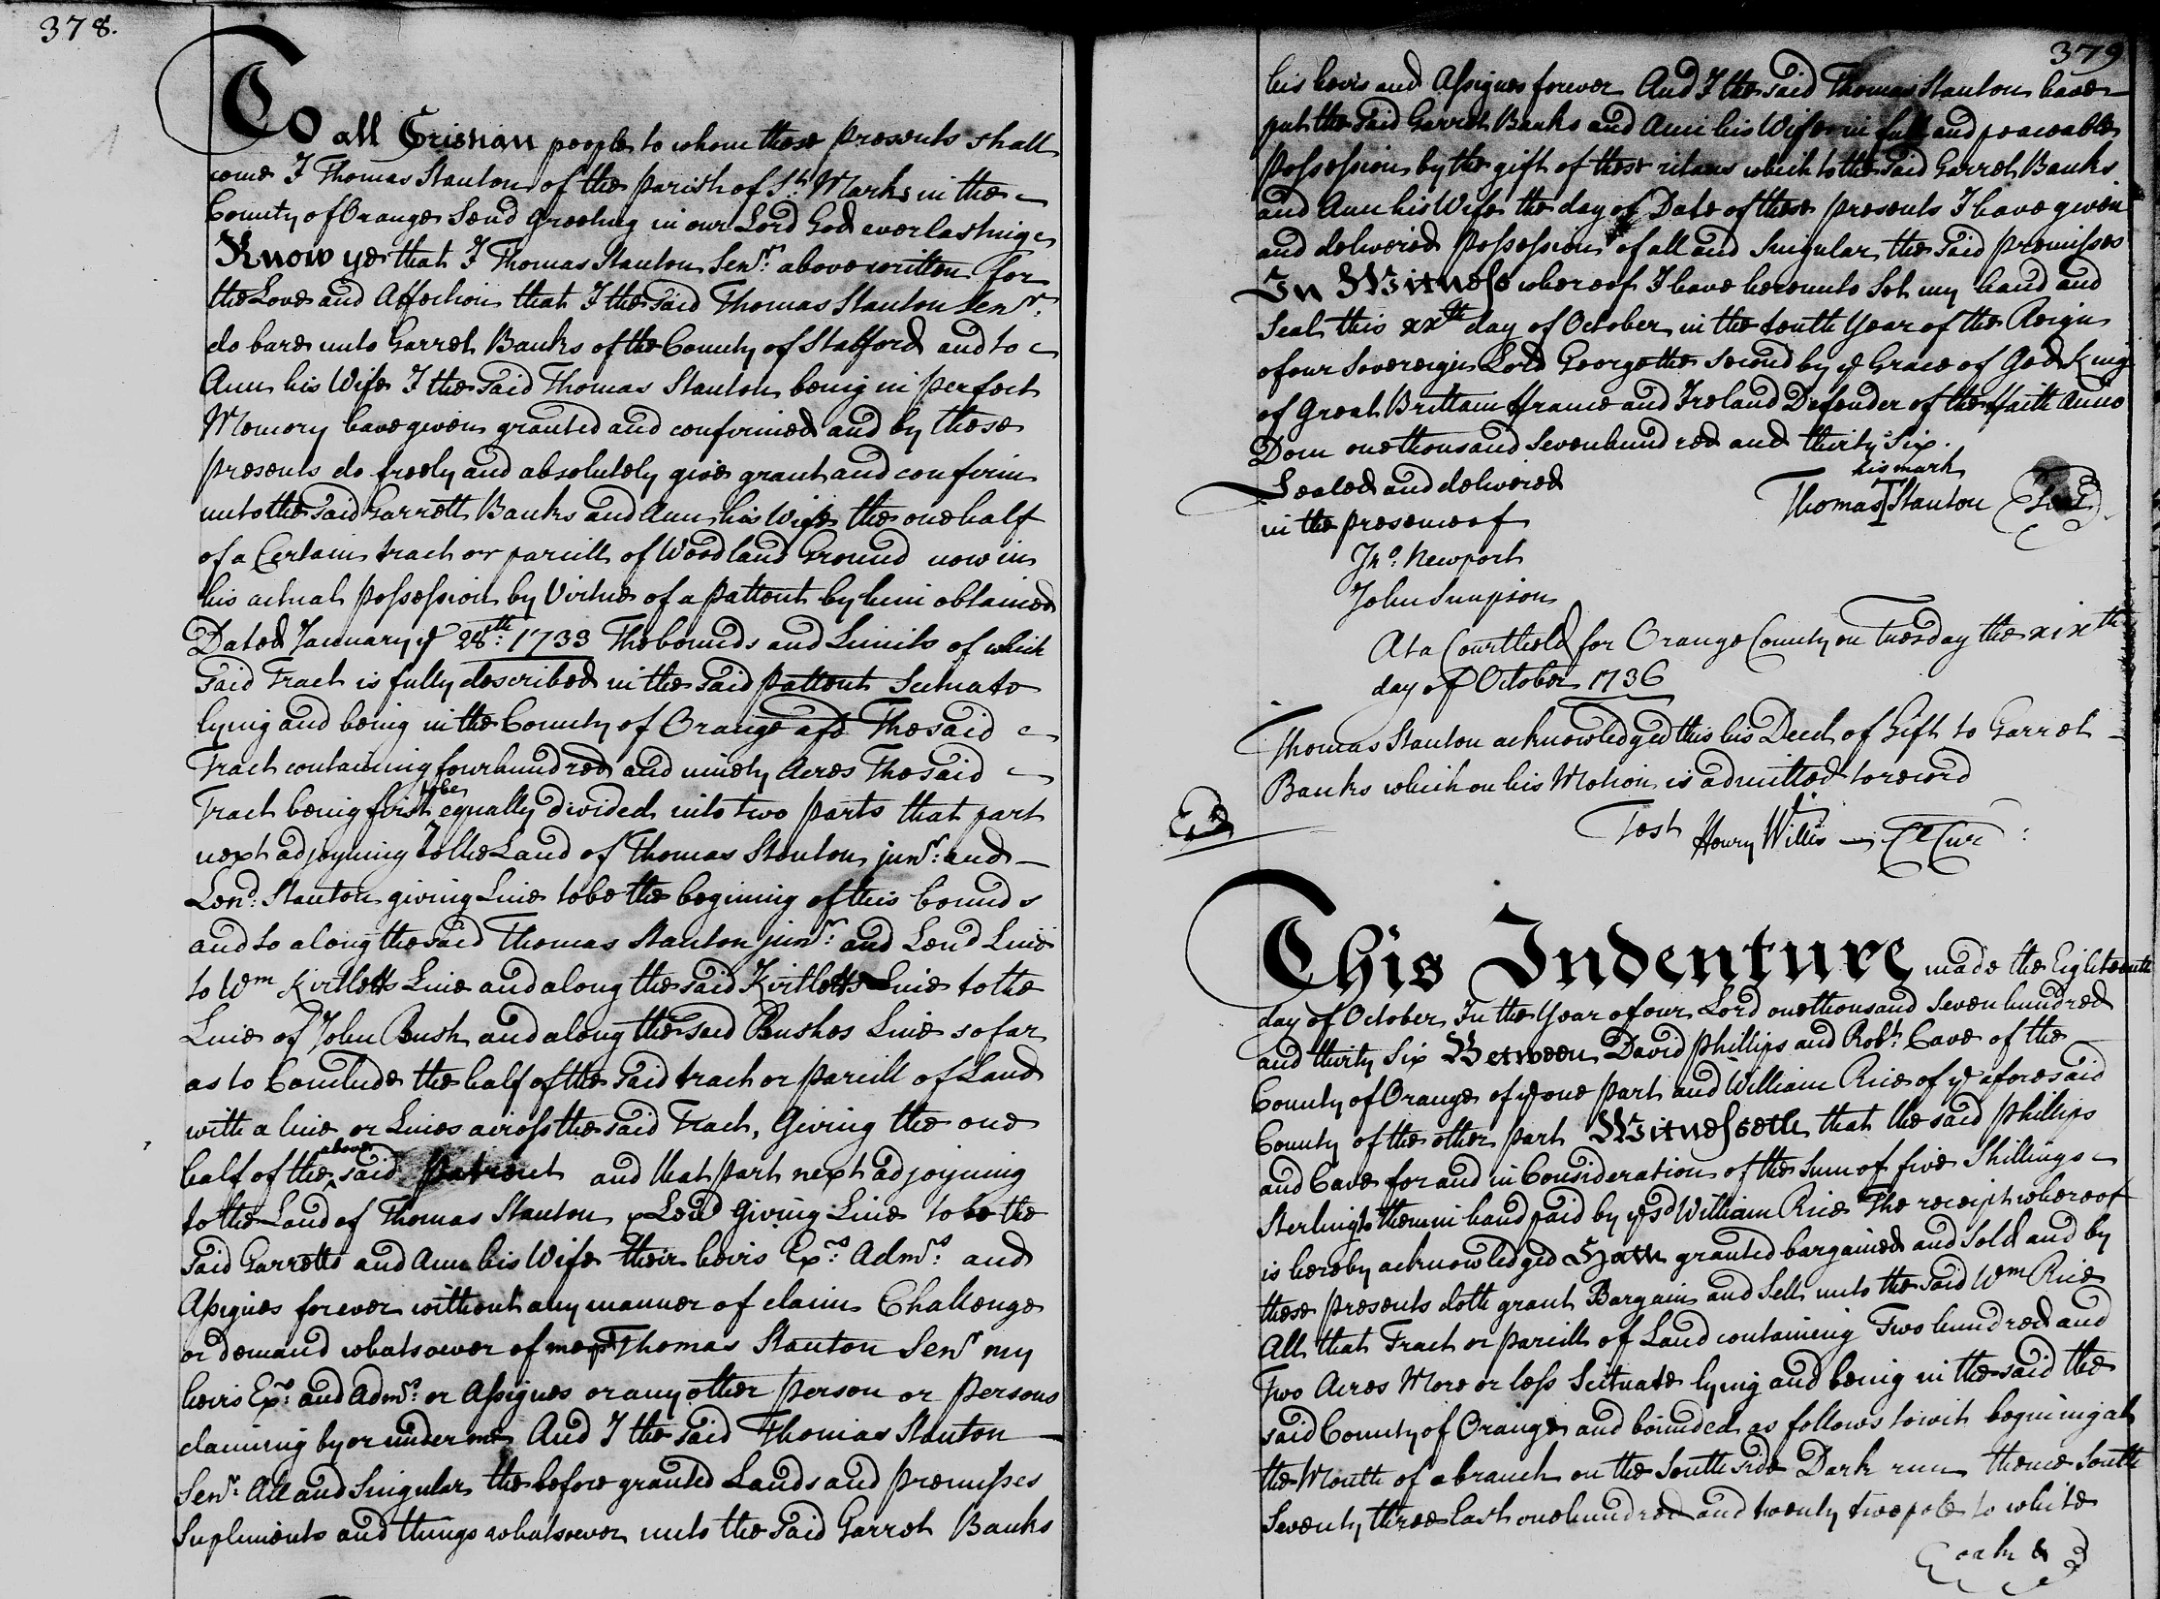 378.
To all Cristian people to whom these presents shall
come I Thomas Stanton of the parish of St. Marks in the
County of Orange Send Greeting in our Lord God everlasting
Know ye that I Thomas Stanton Senr. above written for
the Love and Affection that I the said Thomas Stanton Senr.
do bare unto Garret Banks of the County of Stafford and to
Ann his Wife I the said Thomas Stanton being in perfect
Memory have given granted and confirmed and by these
presents do freely and absolutely give grant and confirm
unto the said Garrett Banks and Ann his Wife the one half
of a Certain tract or parcill of Woodland Ground now in
his actual possession by Virtue of a pattent by him obtained
Dated January ye 28th: 1733 The bounds and Limits of which
said Tract is fully described in the said pattent Scituate
lying and being in the County of Orange afd The said
Tract containing four hundred and ninety Acres The said
Tract being first to be equally divided into two parts that part
next adjoyning to the Land of Thomas Stanton junr: and
Lend: Stanton giving Line to be the begining of this bounds
and so along the said Thomas Stanton junr: and Lend Line
to Wm Kirtletts Line and along the said Kirtletts Line to the
Line of John Bush and along the said Bushes Line so far
as to Conclude the half of the said tract or parcill of Land
with a line or Lines across the said Tract, Giving the one
half of the above said pattent and that part next adjoyning
to the Land of Thomas Stanton & Lend Giving Line to be the
said Garretts and Ann his Wife their heirs Exrs: Admrs: and
Assignes forever without any manner of claim Challenge
or demand whatsoever of me Thomas Stanton Senr my
heirs Exrs: and Admrs: or Assignes or any other person or persons
claiming by or under me And I the said Thomas Stanton
Senr. All and Singular the before granted Lands and premisses
Supliments and things whatsoever unto the said Garret Banks
379
his heirs and Assignes forever And I the said Thomas Stanton have
put the said Garret Banks and Ann his Wife in full and peaceable
possession by the gift of these which to the said Garret Banks
and Ann his Wife the day of Date of these presents I have given
and delivered possession of all and Singular the said premisses
In Witness whereof I have hereunto Set my hand and
Seal this xxth day of October in the tenth Year of the Reign
of our Sovereign Lord George the Second by ye Grace of God King
of Great Brittain ffrance and Ireland Defender of the ffaith Anno
Dom one thousand Seven hundred and thirty Six.
Sealed and delivered
in the presence of
his mark
Thomas T Stanton Seal
Jno. Newport
John Simpson
At a Court held for Orange County on Tuesday the xixth
day of October 1736
Thomas Stanton acknowledged this his Deed of Gift to Garret
Banks which on his Motion is admitted to record
Test Henry Willis Cl Cur
This Indenture made the Eighteenth
day of October In the Year of our Lord one thousand Seven hundred
and thirty Six Between David phillips and Robt: Cave of the
County of Orange of ye one part and William Rice of ye aforesaid
County of the other part Witnesseth that the said phillips
and Cave for and in Consideration of the Sum of five Shillings
Sterling to them in hand paid by ye sd William Rice The receipt whereof
is hereby acknowledged Hath granted bargained and Sold and by
these presents doth grant Bargain and Sell unto the said Wm Rice
All that Tract or parcill of Land containing Two hundred and
Two Acres More or less Scituate lying and being in the said the
said County of Orange and bounded as follows towit begining at
the Mouth of a branch on the South side Dark run thence South
Seventy three East one hundred and twenty two pole to white
oak &